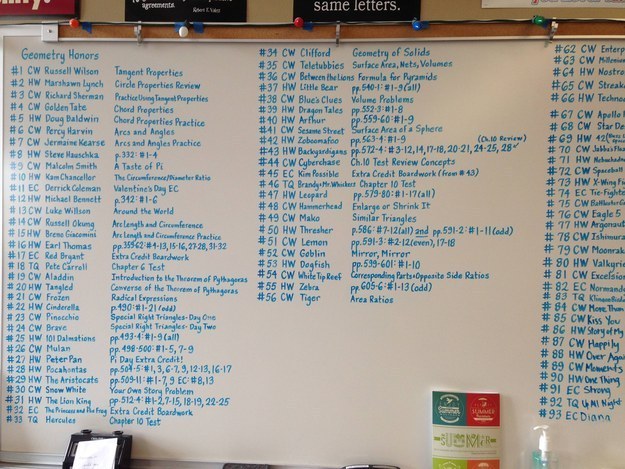 agreements.
same letters.
Geometry Honors
#1 CW Russell Wilson Tangent Properties
#2 HW Marshawn Lynch Circle Properties Review
#3 CW Richard Sherman Practice Using Tangent Properties
#4 CW Golden Tate Chord Properties
#5 HW Doug Baldwin Chord Properties Practice
#6 CW Percy Harvin Arcs and Angles
#7 CW Jermaine Kearse Arcs and Angles Practice
#8 HW Steve Hauschka p.332: #1-4
#9 CW Malcolm Smith A Taste of Pi
#10 HW Kam Chancellor The Circumference/Diameter Ratio
#11 EC Derrick Coleman Valentine's Day EC
#12 HW Michael Bennett p.342: #1-6
#13 CW Luke Willson Around the World
#14 CW Russell Okung Arc Length and Circumference
#15 HW Breno Giacomini Arc Length and Circumference Practice
#16 HW Earl Thomas
#17 EC Red Bryant Extra Credit Boardwork
#18 TQ Pete Carroll Chapter 6 Test
#19 CW Aladdin Introduction to the Theorem of Pythagoras
#20 HW Tangled Converse of the Theorem of Pythagoras
#21 CW Frozen Radical Expressions
#22 HW Cinderella p.490: #1-21 (odd)
#23 CW Pinocchio Special Right Triangles-Day One
#24 CW Brave Special Right Triangles-Day Two
#25 HW 101 Dalmations pp.493-4: #1-9 (all)
#26 CW Mulan pp.498-500: #1-5, 7-9
#27 HW Peter Pan Pi Day Extra Credit!
#28 HW Pocahontas pp.504-5: #1, 3, 6-7, 9, 12-13, 16-17
#29 HW The Aristocats pp.509-11: #1-7, 9 EC: #8, 13
#30 CW Snow White Your Own Story Problem
#31 HW The Lion King pp.512-4: #1-2, 7-15, 18-19, 22-25
#32 EC The Princess and the Frog Extra Credit Boardwork
#33 TQ Hercules Chapter 10 Test
#34 CW Clifford Geometry of Solids
#35 CW Teletubbies Surface Area, Nets, Volumes
#36 CW Between the Lions Formula for Pyramids
#37 HW Little Bear pp.540-1: #1-9 (all)
#38 CW Blue's Clues Volume Problems
#39 HW Dragon Tales pp.552-3: #1-8
#40 HW Arthur pp.559-60: #1-9
#41 CW Sesame Street Surface Area of a Sphere
#42 HW Zoboomafoo pp.563-4: #1-9 (Ch.10 Review)
#43 HW Backyardigans pp.572-4: #3-12, 14, 17-18, 20-21, 24-25, 28
#44 CW Cyberchase Ch.10 Test Review Concepts
#45 EC Kim Possible Extra Credit Boardwork (from #43)
#46 TQ Brandy+Mr. Whiskers Chapter 10 Test
#47 HW Leopard pp.579-80: #1-17 (all)
#48 CW Hammerhead Enlarge or Shrink It
#49 CW Mako Similar Triangles
#50 HW Thresher p.586: #7-12 (all) and pp.591-2: #1-11 (odd)
#51 CW Lemon p.591-3: #2-12 (even), 17-18
#52 CW Goblin Mirror, Mirror
#53 HW Dogfish pp.599-601: #1-10
#54 CW White Tip Reef Corresponding Parts+Opposite Side Ratios
#55 HW Zebra pp.605-6: #1-13 (odd)
#56 CW Tiger Area Ratios
#62 CW Enterp
#63 CW Millenniu
#64 HW Nostro
#65 CW Streak
#66 HW Techno
#67 CW Apollo
#68 CW Star De
#69 HW
#70 CW Jabba's
#71 HW
#72 CW Spaceball
#73 HW X-Wing Fi
#74 EC Tie-Fighte
#75 CW
#76 CW Eagle 5
#77 HW Argonaut
#78 CW Ishimura
#79 CW Moonrak
#80 HW Valkyrie
#81 CW Excelsior
#82 EC Norman
#83 TQ Klingon
#84 CW More Than
#85 CW Kiss You
#86 HW Story of My
#87 CW Happily
#88 HW Over Again
#89 CW Moments
#90 HW One Thing
#91 EC Strong
#92 TQ Up All Night
#93 EC Diana
SUMMER